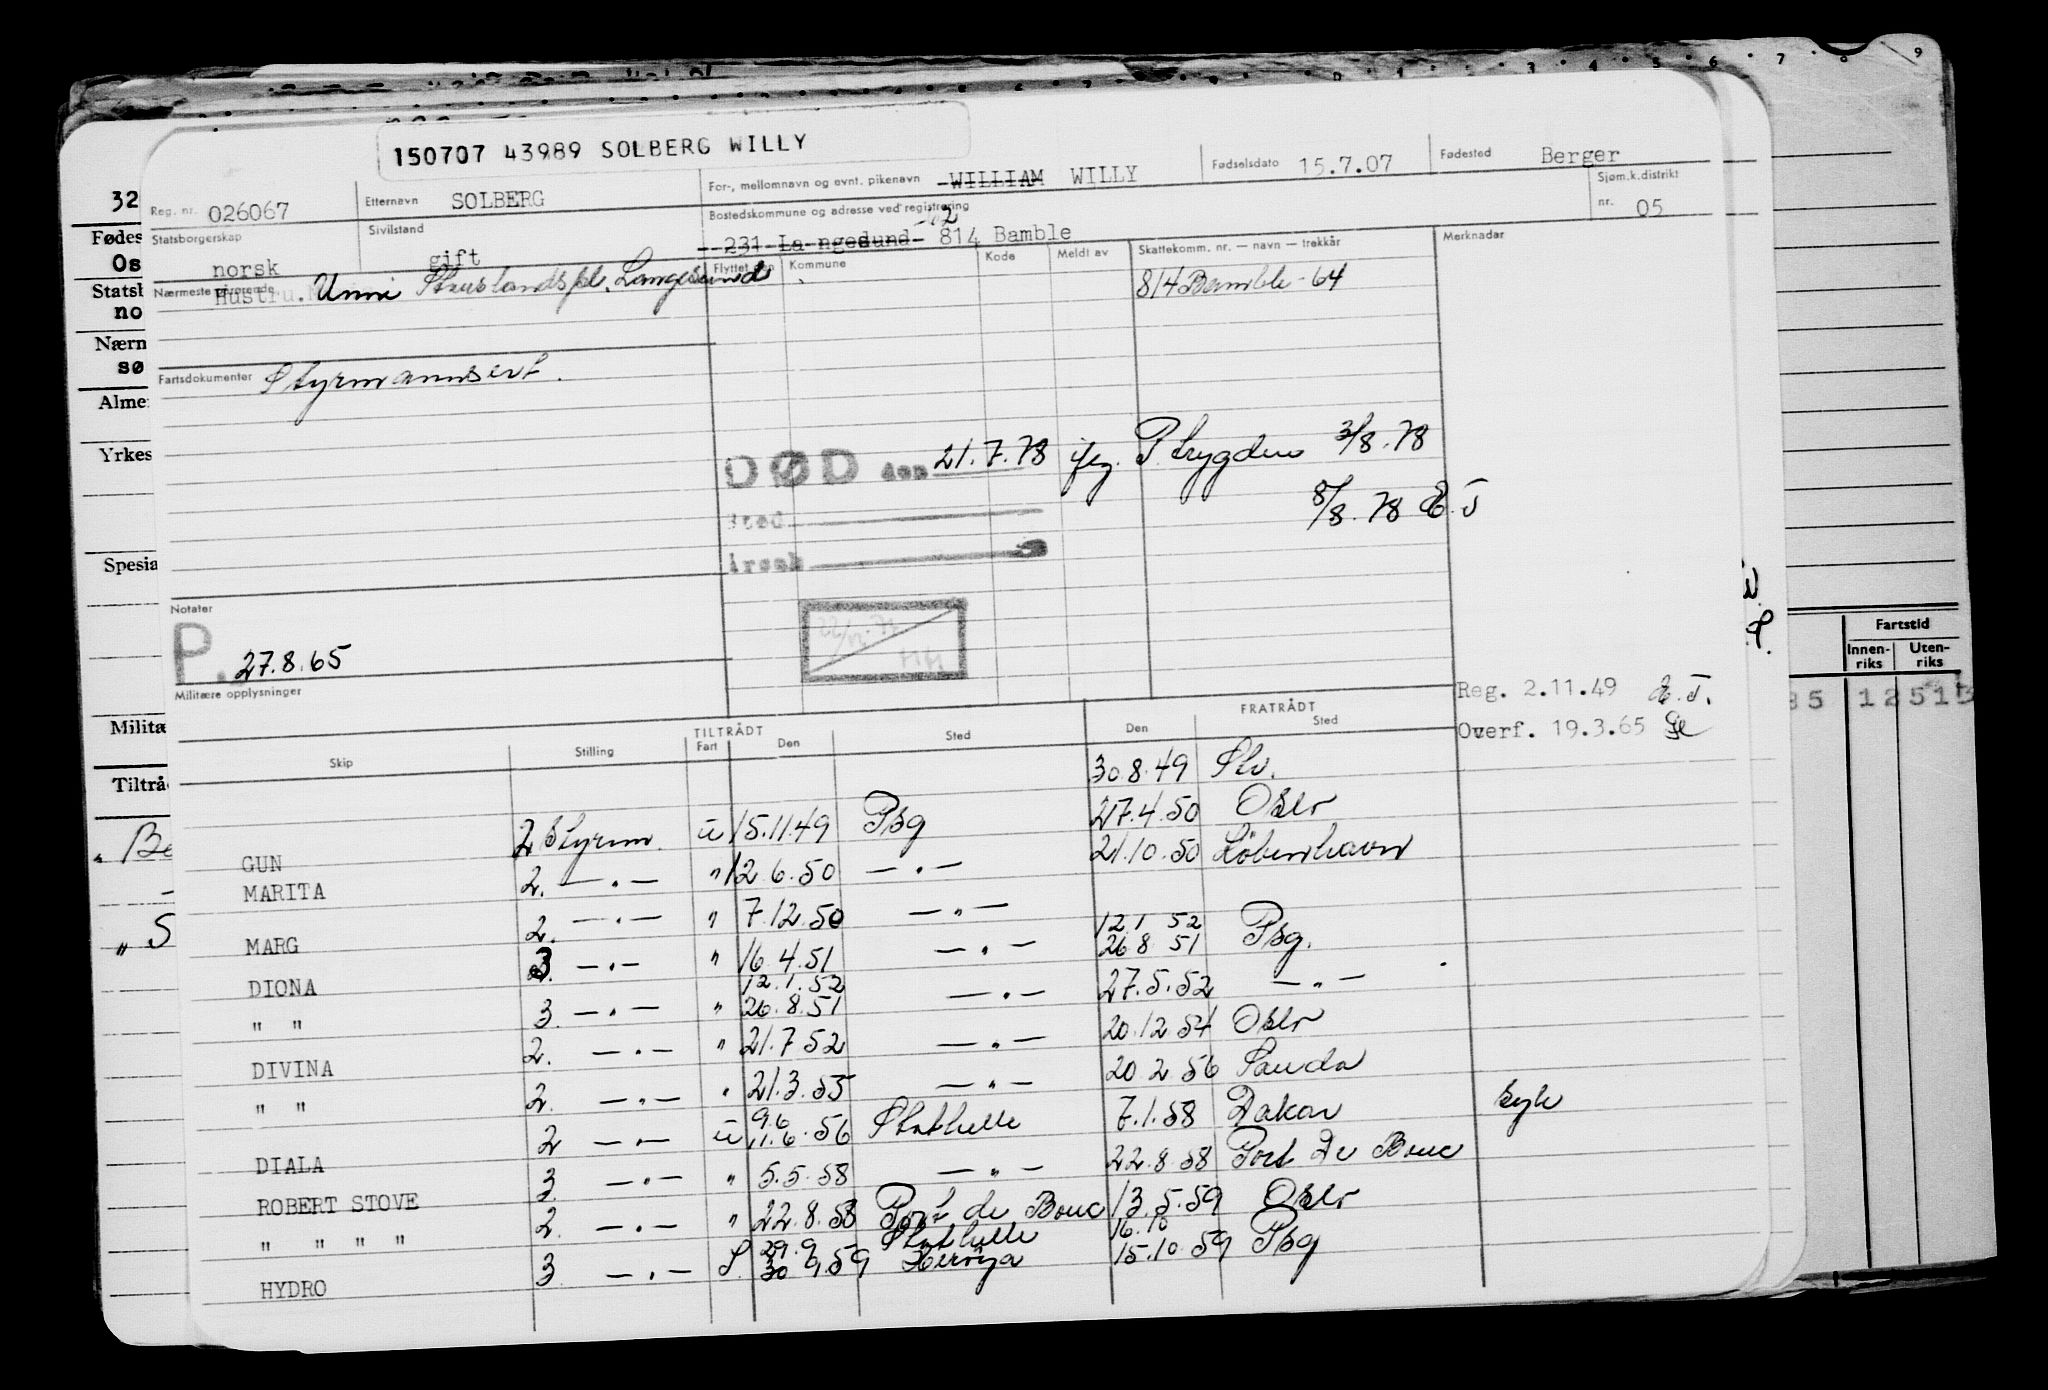 150707 43989 SOLBERG WILLY
Reg. nr. 026067
Etternavn SOLBERG
For-, mellomnavn og evnt. pikenavn WILLIAM WILLY
Fødselsdato 15.7.07
Fødested Berger
Statsborgerskap norsk
Sivilstand gift
Bostedskommune og adresse ved registrering
231 Langesund 814 Bamble
Sjøm.k.distrikt nr. 05
Nærmeste pårørende Hustru. Unni Langesund
Flyttet den Kommune Kode Meldt av Skattekomm. nr. — navn — trekkår Merknader
814 Bamble - 64
Fartsdokumenter Styrmannsert.
DØD den 21.7.78 jfg. P. trygden 3/8.78
8/8.78 E.T
Sted
Årsak
Notater
P. 27.8.65
Militære opplysninger
Reg. 2.11.49 E.T.
Overf. 19.3.65
TILTRÅDT FRATRÅDT
Skip Stilling Fart Den Sted Den Sted
30.8.49 Slv.
GUN 2 Styrm. u 15.11.49 Psg 27.4.50 Oslo
MARITA 2. — " — " 12.6.50 — " — 21.10.50 København
MARG 2. — " — " 7.12.50 — " —
DIONA 3. — " — " 16.4.51 — " — 12.1 52 26 8 51 Psg.
" " 3. — " — " 12.1.52 26.8.51 — " — 27.5.52 — " —
DIVINA 2. — " — " 21.7 52 — " — 20.12 54 Oslo
" " 2. — " — " 21.3.55 — " — 20.2.56 Sauda
DIALA 2 — " — u 9.6 11.6.56 Stathelle 7.1.58 Dakar syk
ROBERT STOVE 3. — " — " 5.5.58 — " — 22.8.58 Port De Bouc
" " " " 2. — " — " 22.8.58 Port de Bouc 13.5.59 Oslo
HYDRO 3. — " — S. 29.9 30 9.59 Stathelle Herøya 16.10 15.10.59 Psg
32
Fødes
Os
Statsb
no
Nærn
sø
Alme
Yrkes
Spesia
Militæ
Tiltrå
Fartstid
Innenriks Utenriks